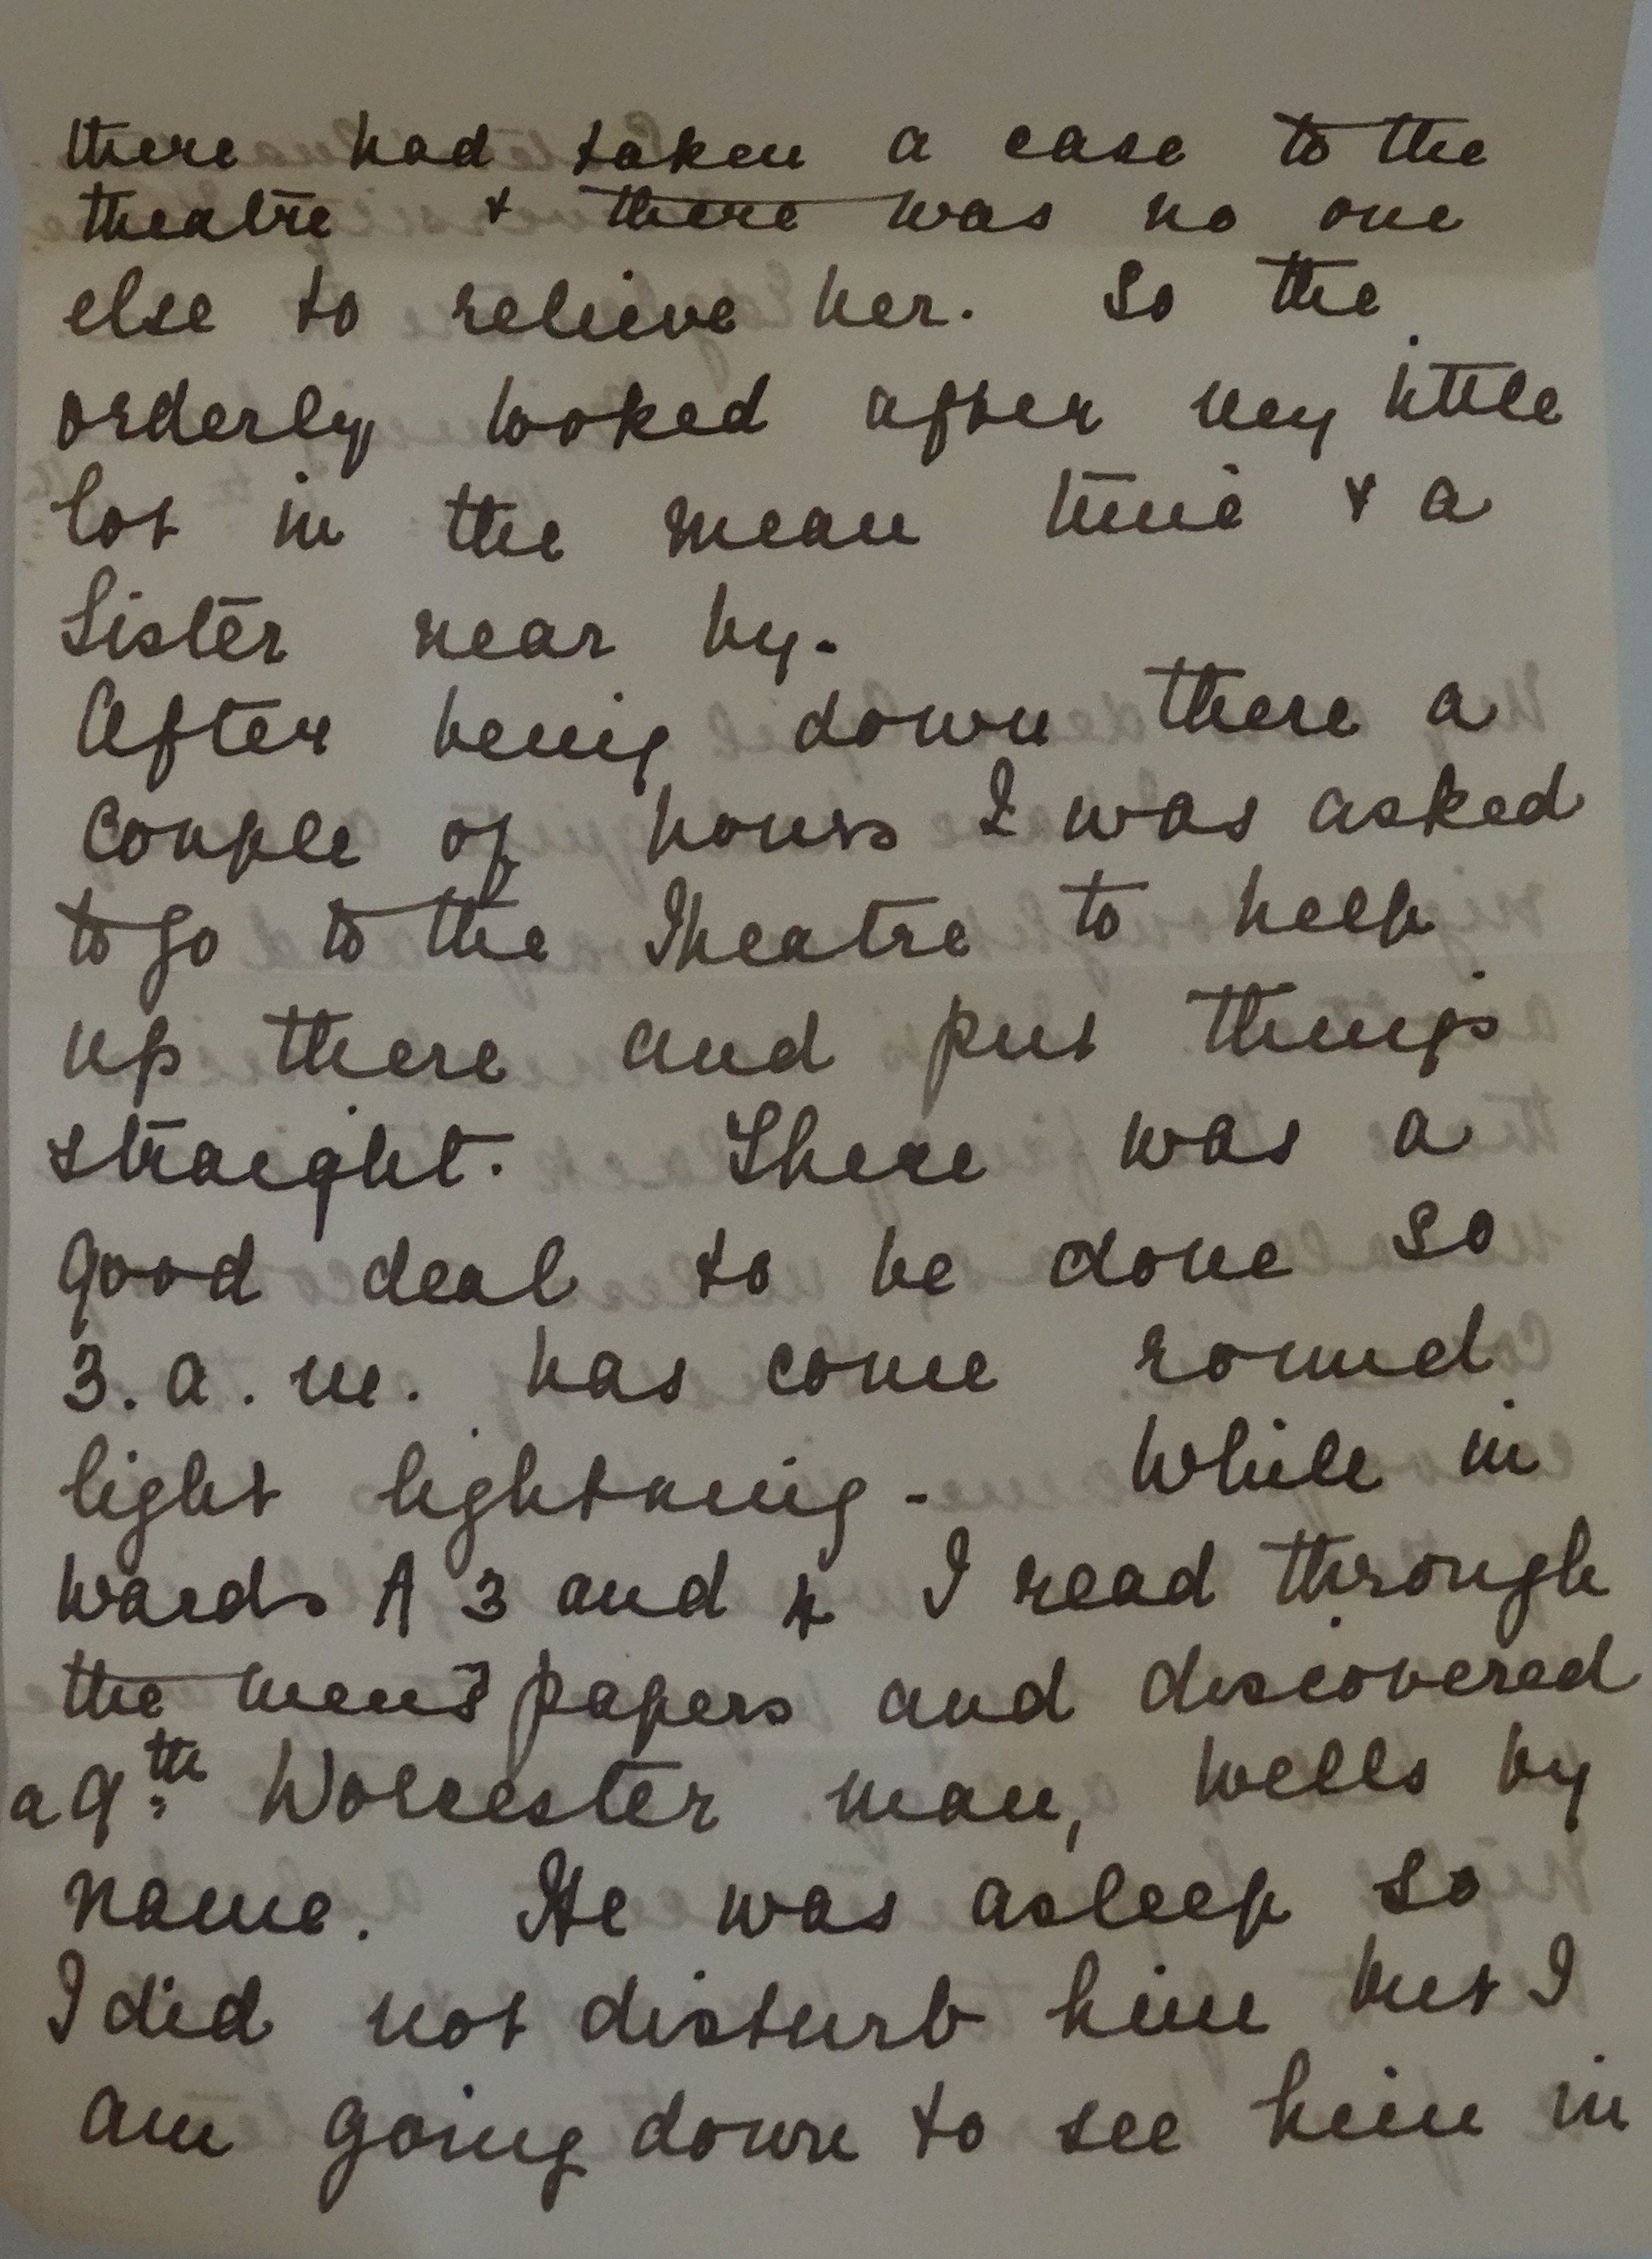 there had taken a case to the
theatre & there was no one
else to relieve her. So the
orderly looked after my little
lot in the mean time & a
Sister near by.
After being down there a
couple of hours I was asked
to go to the Theatre to help
up there and put things
straight. There was a
good deal to be done so
3. a. m. has come round
light lightning - While in
wards A 3 and 4 I read through
the men's papers and discovered
a 9th Worcester man, Wells by
name. He was asleep so
I did not disturb him but I
am going down to see him in